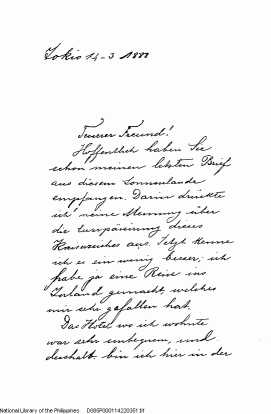 Tokio 14-3 1888
Teuerer Freund!
Hoffentlich haben Sie
schon meinen letzten Brief
aus diesem Sonnenlande
empfangen. Darin drückte
ich meine Meinung über
die Europäisierung dieses
Kaiserreiches aus. Jetzt kenne
ich es ein wenig besser; ich
habe ja eine Reise ins
Inland gemacht, welches
mir sehr gefallen hat.
Das Hotel wo ich wohnte
war sehr unbequem, und
deshalb bin ich hier in der
National Library of the Philippines